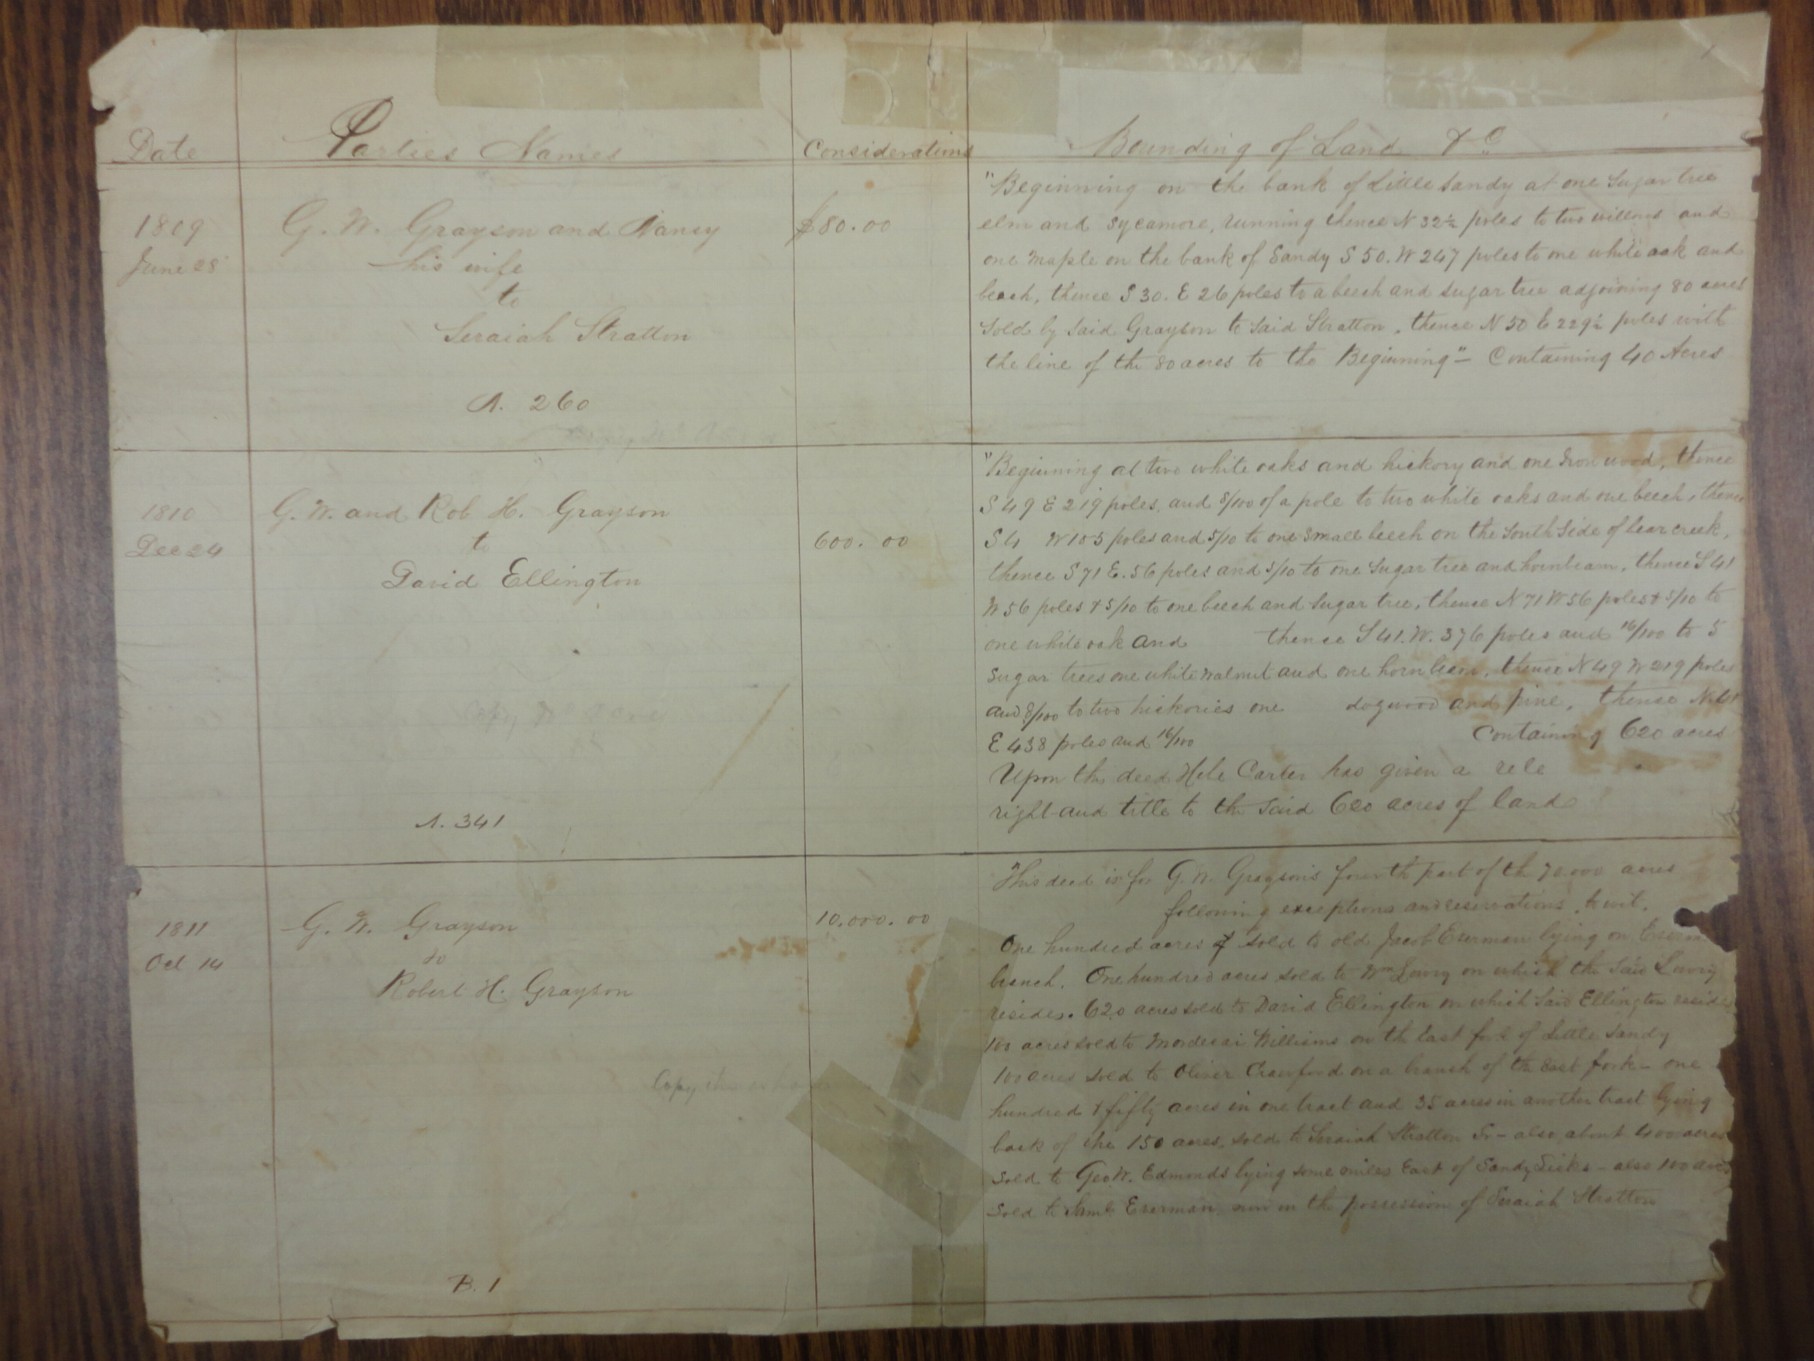 Date Parties Names Considerations Bounding of Land &c
1809
June 28
G. W. Grayson and Nancy
his wife
to
Seraiah Stratton
A. 260
$80.00
"Beginning on the bank of Little Sandy at one Sugar tree
elm and Sycamore, running thence N 32½ poles to two willows and
one Maple on the bank of Sandy S 50. W 247 poles to one white oak and
beach, thence S 30. E 26 poles to a beech and sugar tree adjoining 80 acres
Sold by Said Grayson to Said Stratton, thence N 50 E 229½ poles with
the line of the 80 acres to the Beginning" – Containing 40 Acres
1810
Dec 24
G. W. and Rob H. Grayson
to
David Ellington
A. 341
600.00
"Beginning at two white oaks and hickory and one Iron wood, thence
S 49 E 219 poles, and 8/100 of a pole to two white oaks and one beech, thence
S 4 W 105 poles and 5/10 to one small beech on the South Side of bear creek,
thence S 71 E. 56 poles and 5/10 to one Sugar tree and hornbeam, thence S 41
W 56 poles & 5/10 to one beech and Sugar tree, thence N 71 W 56 poles & 5/10 to
one white oak and thence S 41. W. 376 poles and 16/100 to 5
Sugar trees one white walnut and one hornbeam, thence N 49 W 219 poles
and 8/100 to two hickories one dogwood and pine, thence N 41
E 438 poles and 16/100 Containing 620 acres
Upon this deed Hebe Carter has given a rele
right and title to the Said 620 acres of land
1811
Oct 14
G. W. Grayson
to
Robert H. Grayson
Copy
B. 1
10,000.00
This deed is for G. W. Grayson's fourth part of th 70.000 acres
following exceptions and reservations, to wit.
One hundred acres of sold to old Jacob Eserman lying on
branch. One hundred acres sold to Wm Lowry on which the said Lowry
resides. 620 acres sold to David Ellington on which Said Ellington reside
100 acres sold to Mordecai Williams on the East fork of Little Sandy
100 acres sold to Oliver Crawford on a branch of the East fork – one
hundred & fifty acres in one tract and 35 acres in another tract lying
back of the 150 acres, sold to Seraiah Stratton Sr – also about 400 acres
Sold to Geo W. Edmonds lying some miles East of Sandy Licks – also 100 acres
Sold to Saml Eserman now in the possession of Seraiah Stratton